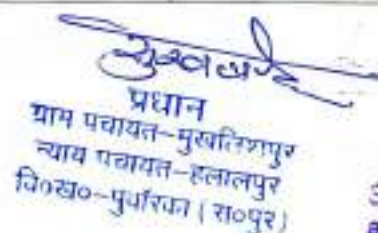 प्रधान
ग्राम पंचायत-मुख्तिशपुर
न्याय पंचायत-हलालपुर
वि०ख०-पुवॉरका (स०पुर)